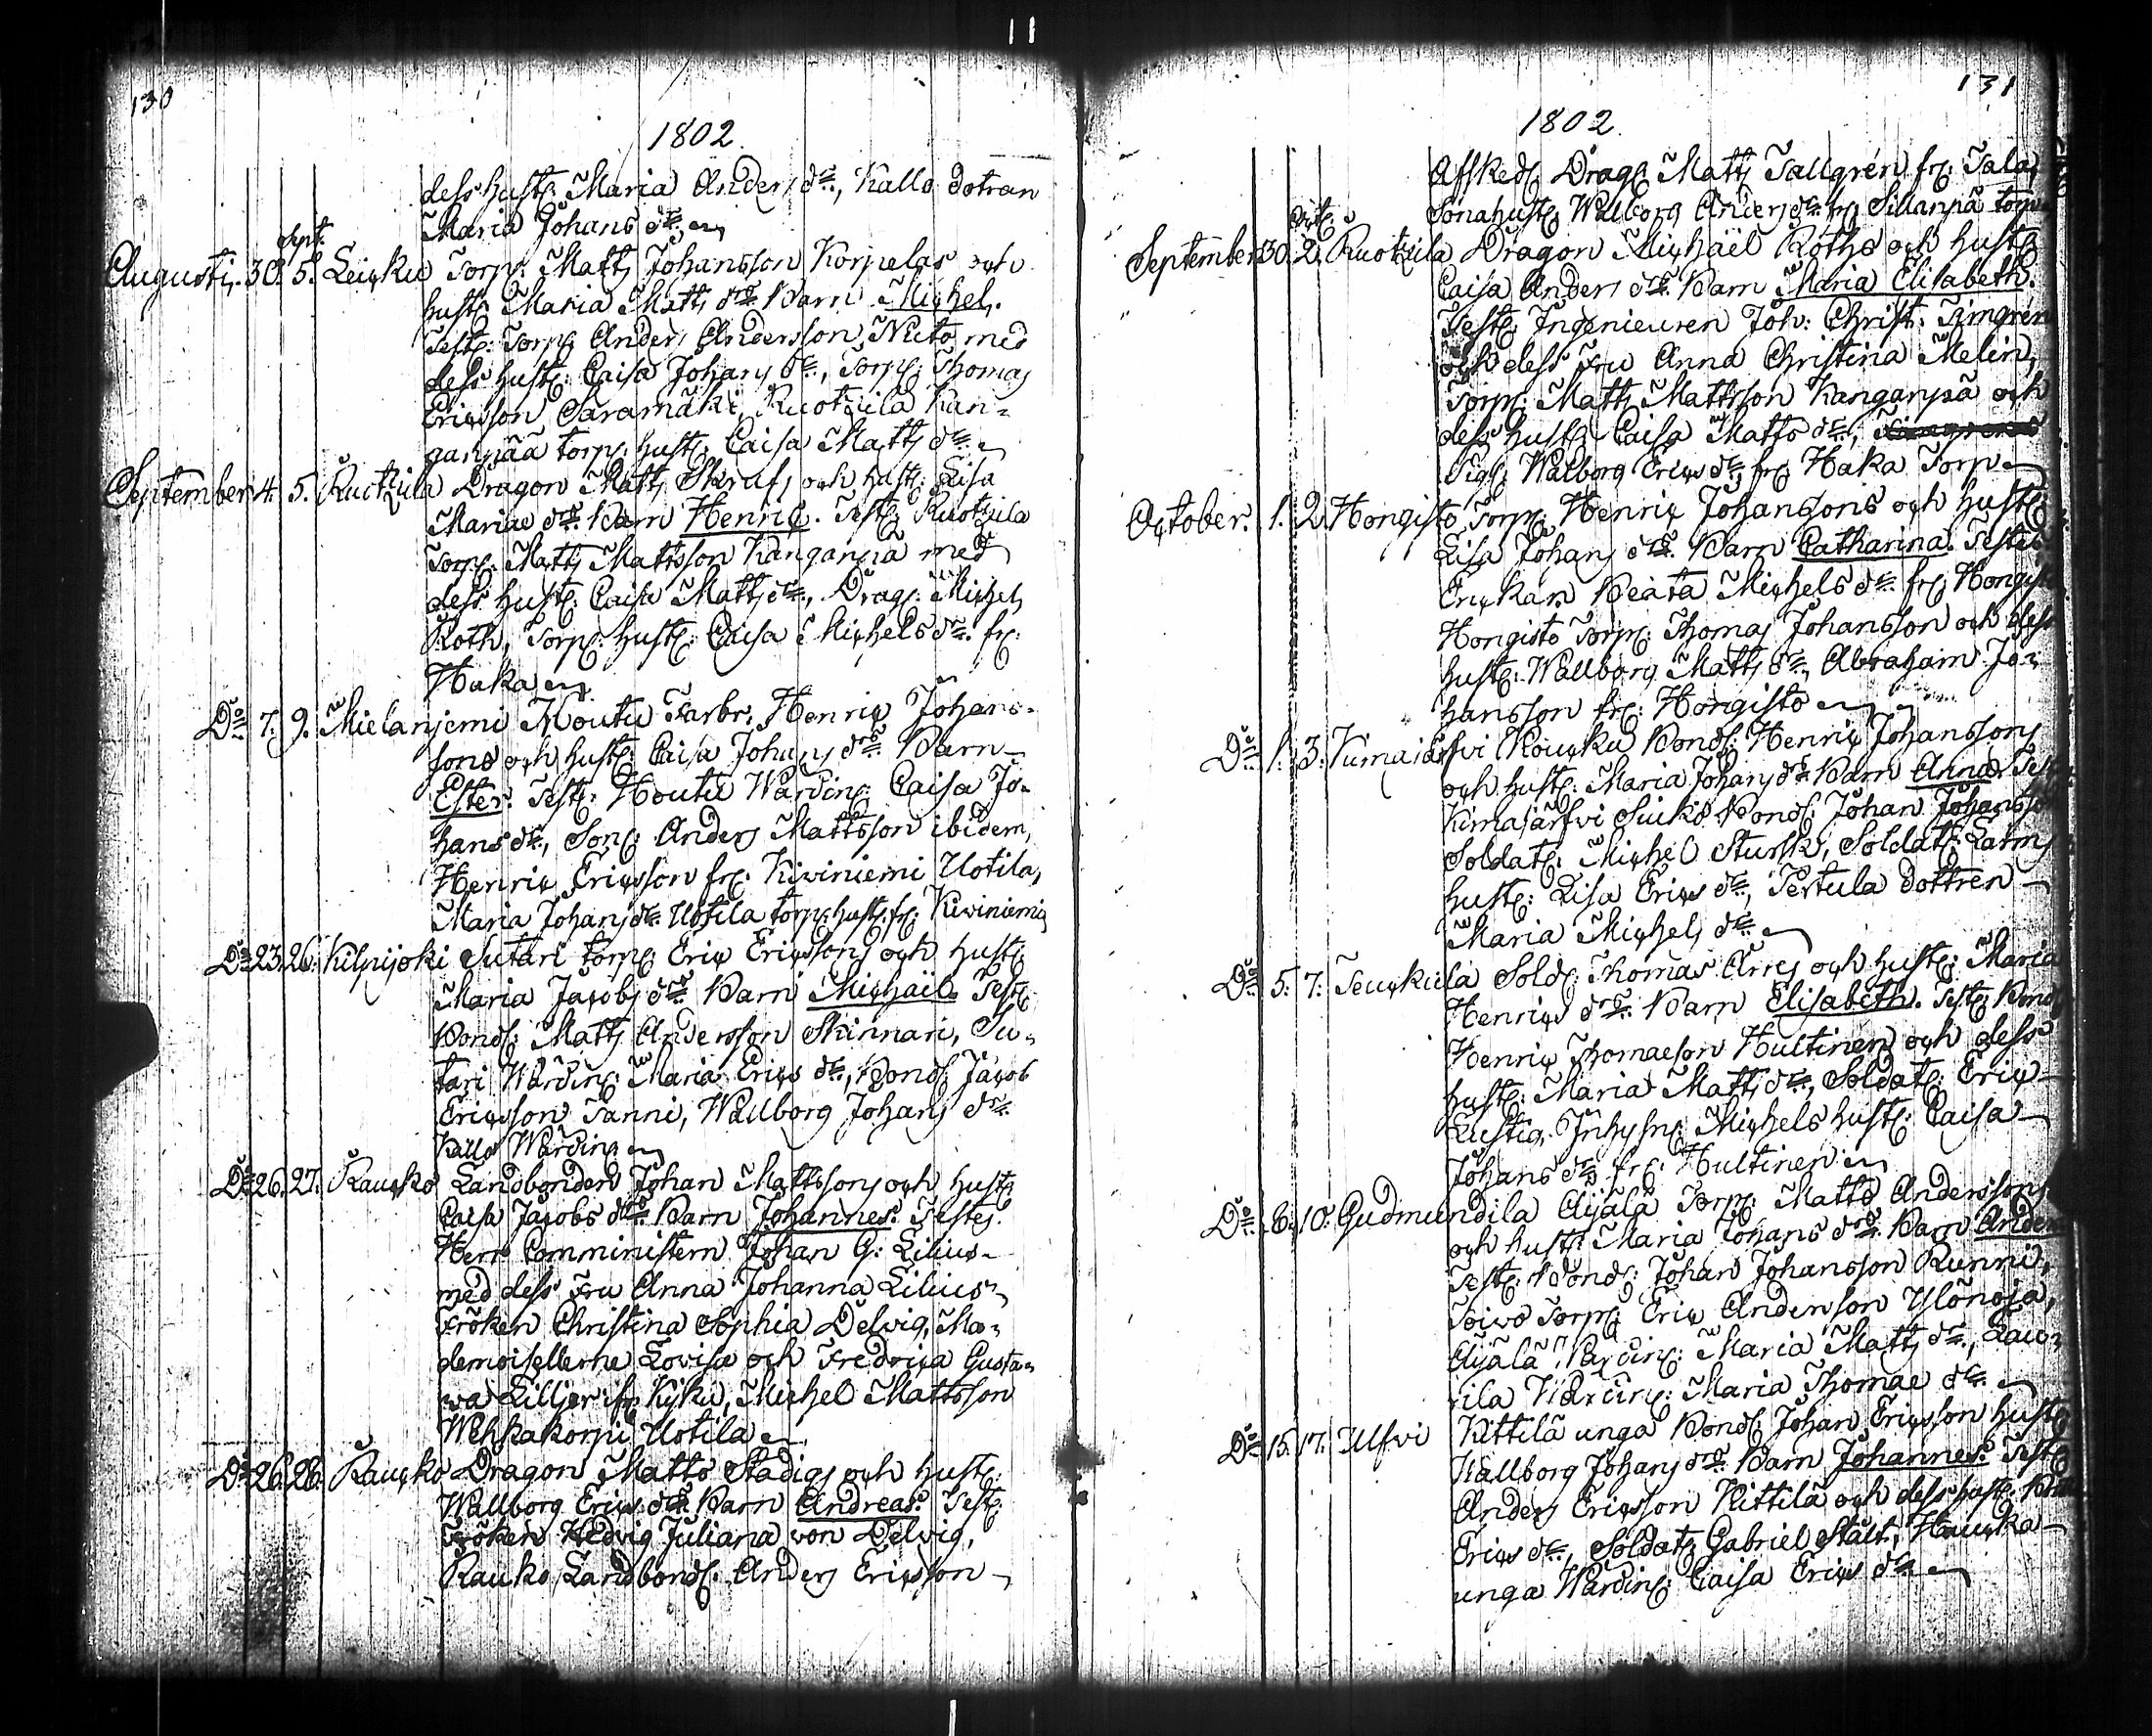 11
130
1802
dess hustr: Maria Anders dr., Kallo dotran
Maria Johans dr.
Sept.
Augusti. 30. 5. Leicku Torp: Matts Johansson Korpelas och
hustr: Maria Matts drs. Barn Michel.
Test: Torp: Anders Andersson Nuto med
dess hustr: Caisa Johans dr., Torp: Thomas
Ericsson Saramäki, Ruotzila Kan-
ganpää torp: hustr: Caisa Matts dr.
September 4. 5. Ruotzila Dragon Matts Skrufs och hustr: Lisa
Mariae drs. Barn Henric. Test: Ruotzila
Torp: Matts Mattsson Kanganpä med
dess hustr: Caisa Matts dr., Drag: Michel
Roth, Torp: hustr: Caisa Michels dr. fr:
Haka
Do. 7. 9. Mielanjemi Moutu Farbr. Henric Johans-
sons och hustr: Caisa Johans drs. Barn
Ester. Test: Houtu Wärdin: Caisa Jo-
hans dr., Son: Anders Mattsson ibidem,
Henric Ericsson fr: Kiviniemi Uotila,
Maria Johans dr. Uotila torp: hustr: fr: Kiviniemi
Do. 23. 26. Kilpijoki Sutari torp: Eric Ericssons och hustr:
Maria Jacobs drs. Barn Michaël. Test:
Bond: Matts Andersson Skinnari, Su-
tari Wärdin: Maria Erics dr., Bond: Jacob
Ericsson Tanni, Wallborg Johans dr.
Kallo Wärdin
Do. 26. 27. Raucko Landbonden Johan Mattssons och hustr:
Caisa Jacobs drs. Barn Johannes. Testes:
Herr Comministern Johan G: Lilius
med dess Fru Anna Johanna Lilius
Fröken Christina Sophia Delvig, Ma-
demoisellerne Lovisa och Fredrica Gusta-
va Lilljer fr: Kyku, Michel Mattsson
Wehkakorpi Uotila
Do. 26. 28. Raucko Dragon Matts Stadigs och hustr:
Wallborg Erics drs. Barn Andreas. Test:
Fröken Hedvig Juliana von Delvig,
Rauko Landbond: Anders Ericsson
131
1802
Afsked: Drag: Matts Tallgrén fr: Tala,
Sonahustr: Wallborg Anders dr. fr: Sillanpä torp
Oct:
September 30. 2. Ruotzila Dragon Michaël Roths och hustr:
Caisa Anders drs. Barn Maria Elisabeth.
Test: Ingenieuren Joh: Christ: Timgrén
och dess Fru Anna Christina Melin,
Torp: Matts Mattsson Kanganpä och
dess hustr: Caisa Matts dr.,
Pig: Walborg Erics dr. fr: Haka Torp
October. 1. 2. Hongisto Torp: Henric Johansons och hustr:
Lisa Johans drs. Barn Catharina. Testes:
Enckan Beata Michels dr. fr: Hongisto
Hongisto Torp: Thomas Johansson och dess
hustr: Wallborg Matts dr., Abraham Jo-
hansson fr: Hongisto
Do. 1. 3. Kimajärfvi Koucku Bond: Henric Johanssons
och hustr: Maria Johans drs. Barn Anna. Test:
Kimajärfvi Suiko Bond: Johan Johansson
Soldat: Michel Sturck, Soldat: Larms
hustr: Lisa Erics dr., Pertula dottren
Maria Michels dr.
Do. 5. 7. Teuckula Sold: Thomas Arrs och hustr: Maria
Henrics drs. Barn Elisabeth. Test: Bond:
Henric Thomaeson Hultinen och dess
hustr: Maria Matts dr., Soldat: Eric
Lustig, Inhysn: Michels hustr: Caisa
Johans dr. fr: Hultinen
Do. 8. 10. Gudmundila Aijälä Torp: Matts Anderssons
och hustr: Maria Johans drs. Barn Anders
Test: Bond: Johan Johansson Runni,
Toivo Torp: Eric Andersson Ylönoja,
Aijälä Wärdin: Maria Matts dr., Lau-
rila Wärdin: Maria Thomae dr.
Do. 15. 17. Ulfvi Kittilä unga Bond: Johan Ericsson hustr:
Wallborg Johans drs. Barn Johannes. Test:
Anders Ericsson Kittilä och dess hustr:
Erics dr., Soldat: Gabriel Stält, Haucka
unga Wärdin: Caisa Erics dr.